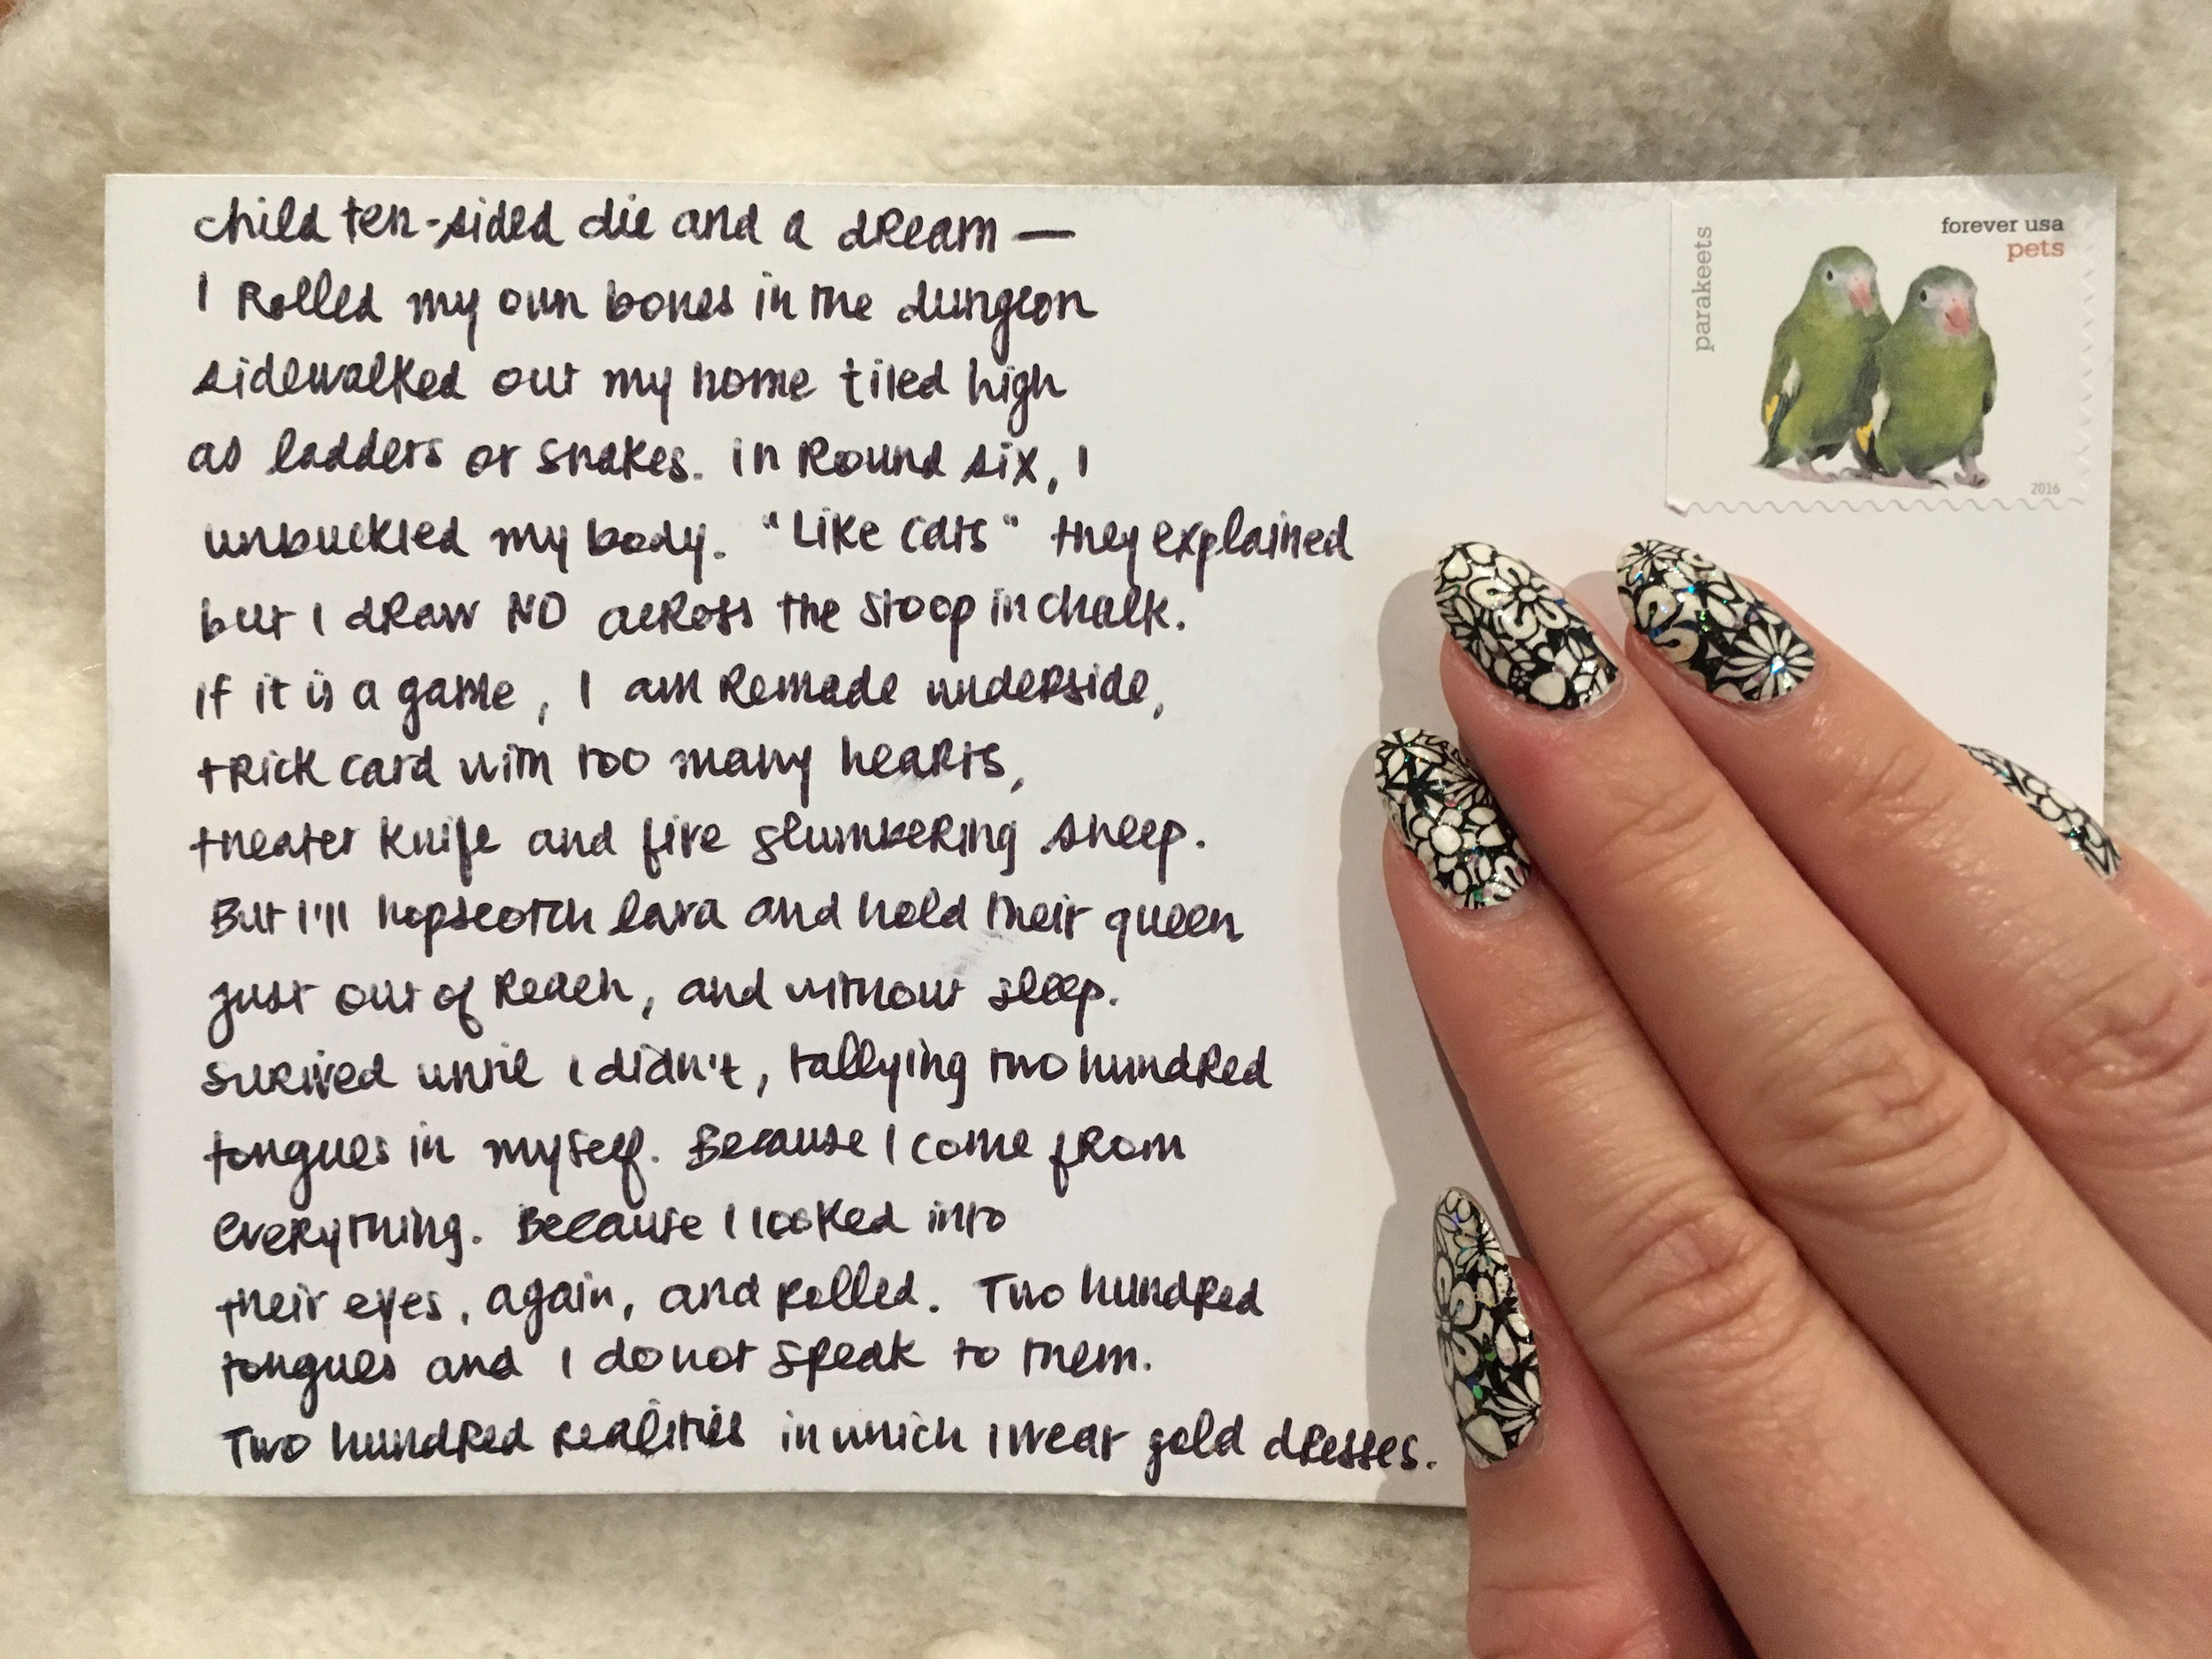 child ten-sided die and a dream —
I Rolled my own bones in the dungeon
sidewalked out my home tiled high
as ladders or snakes. in Round six, I
unbuckled my body. "Like cats" they explained
but I draw NO across the stoop in chalk.
if it is a game, I am Remade underside,
trick card with too many hearts,
theater knife and five slumbering sheep.
But I'll hopscotch lava and hold their queen
just out of Reach, and without sleep.
survived until I didn't, tallying two hundred
tongues in myself. Because I come from
everything. Because I looked into
their eyes, again, and rolled. Two hundred
tongues and I do not speak to them.
Two hundred realities in which I wear gold dresses.
parakeets
forever usa
pets
2016